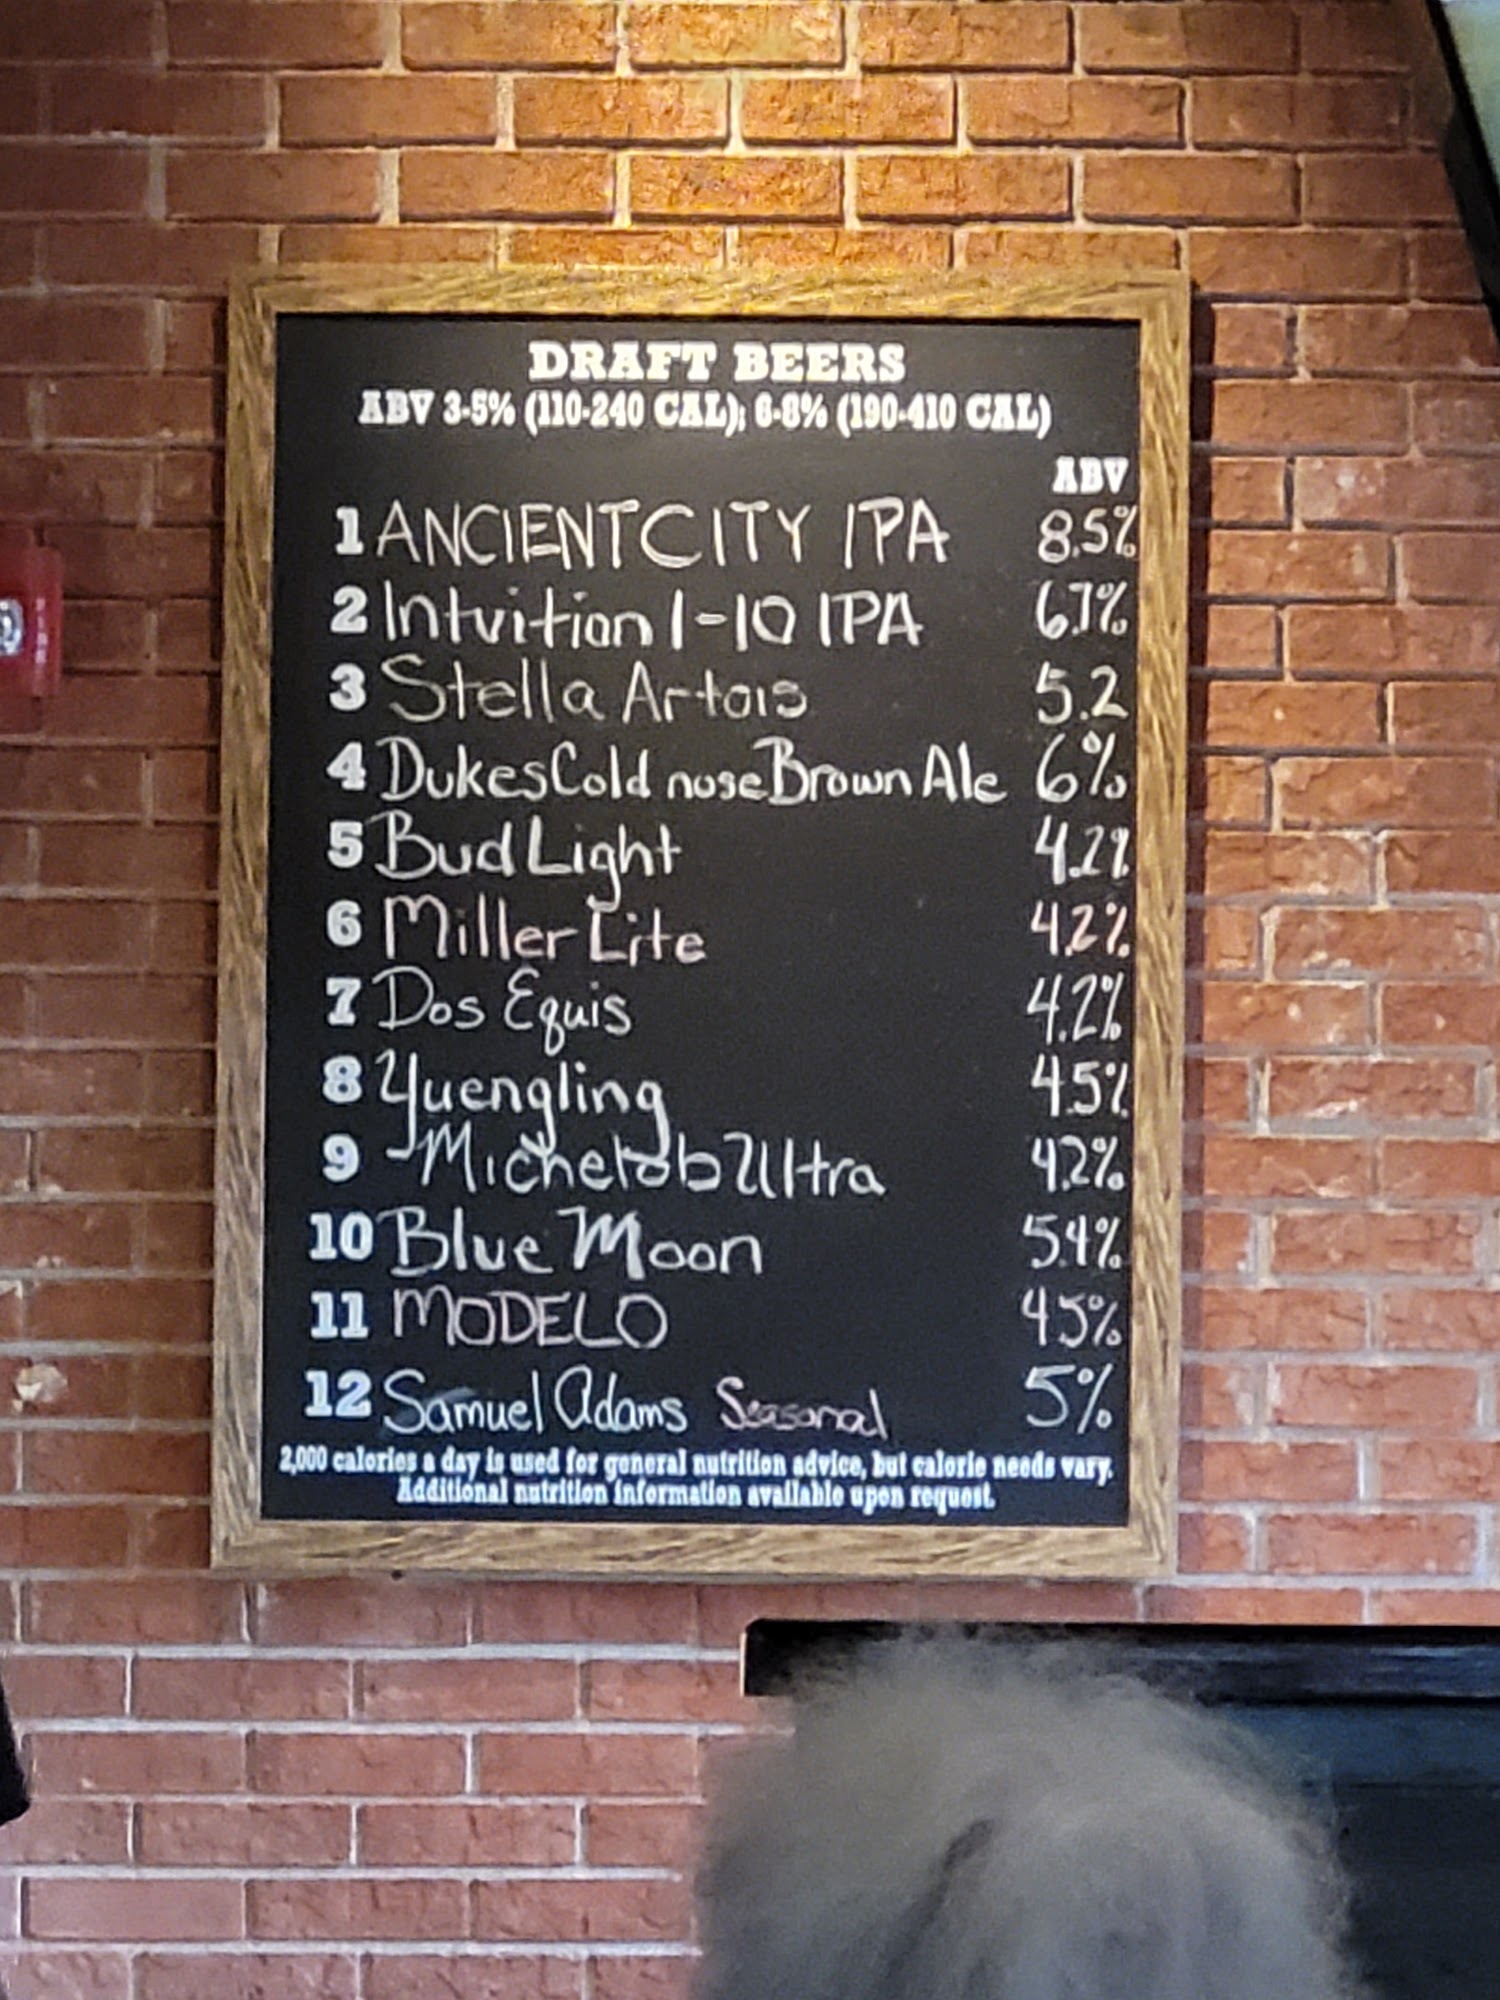 DRAFT BEERS
ABV 3-5% (110-240 CAL); 6-8% (190-410 CAL)
ABV
1 ANCIENT CITY IPA 8.5%
2 Intuition 1-10 IPA 6.7%
3 Stella Artois 5.2
4 Dukes Cold nose Brown Ale 6%
5 Bud Light 4.2%
6 Miller Lite 4.2%
7 Dos Equis 4.2%
8 Yuengling 4.5%
9 Michelob Ultra 4.2%
10 Blue Moon 5.4%
11 MODELO 4.5%
12 Samuel Adams Seasonal 5%
2,000 calories a day is used for general nutrition advice, but calorie needs vary.
Additional nutrition information available upon request.